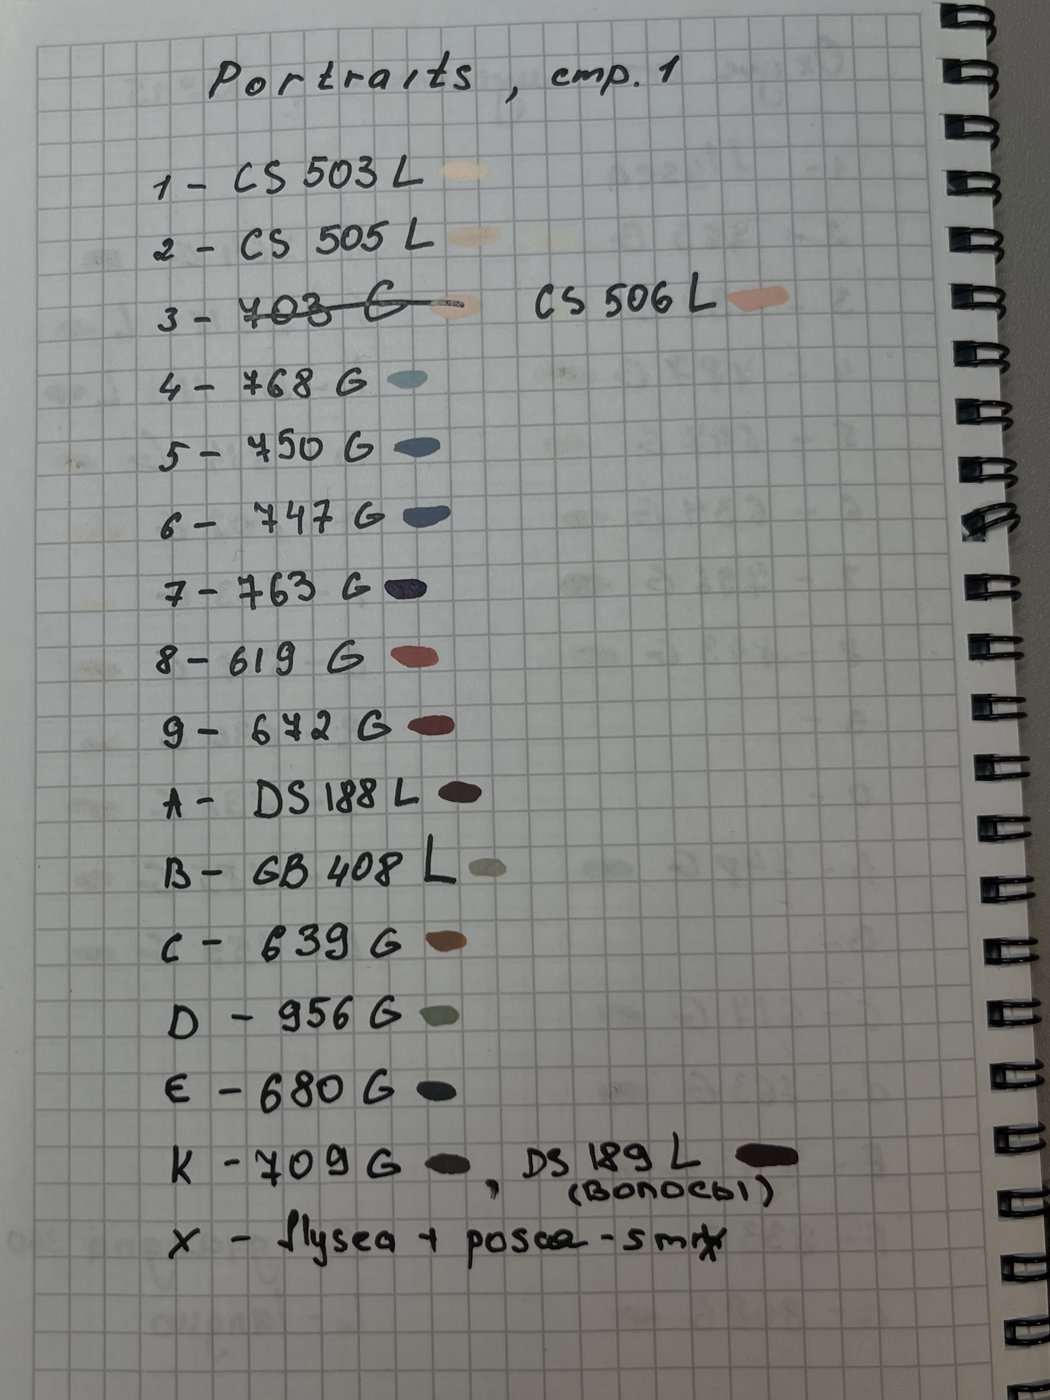 Portraits, стр. 1
1 - CS 503 L
2 - CS 505 L
3 - 703 G CS 506 L
4 - 768 G
5 - 750 G
6 - 747 G
7 - 763 G
8 - 619 G
9 - 672 G
A - DS 188 L
B - GB 408 L
C - 639 G
D - 956 G
E - 680 G
K - 709 G, DS 189 L
(волосы)
X - + posca -